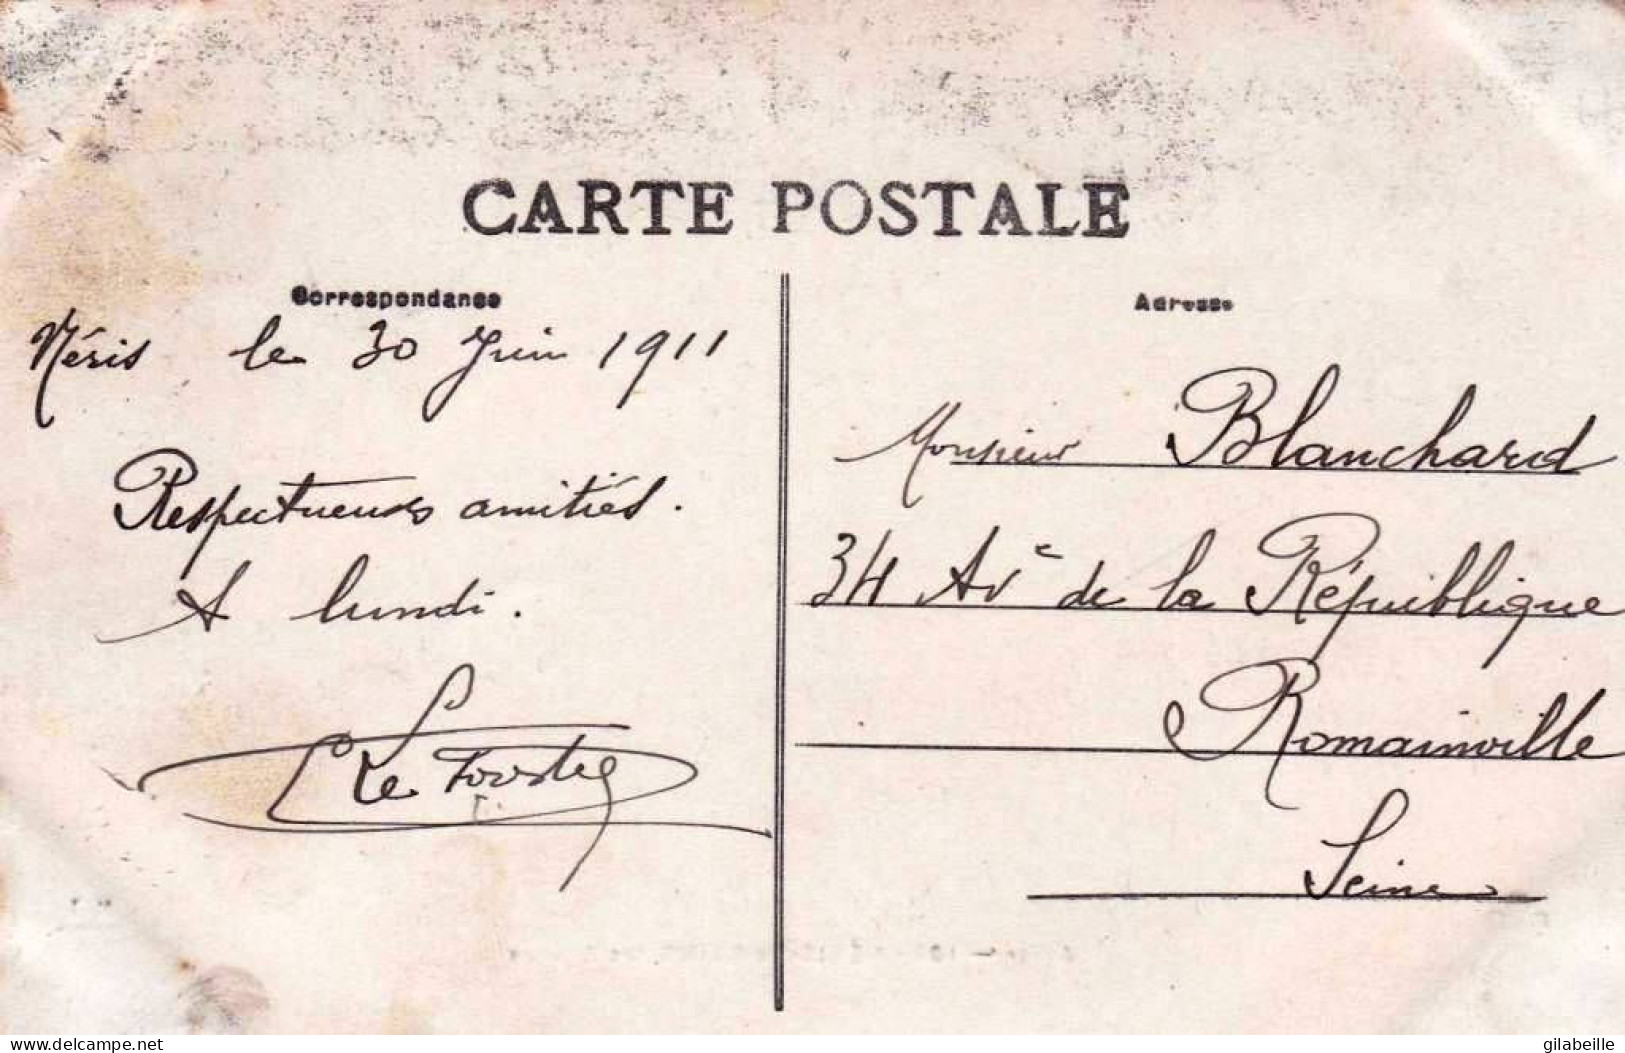 CARTE POSTALE
Correspondance
Néris le 30 Juin 1911
Respectueuses amitiés.
A lundi.
Adresse
Monsieur Blanchard
34 Avᵉ de la République
Romainville
Seine
delcampe.net
gilabeille